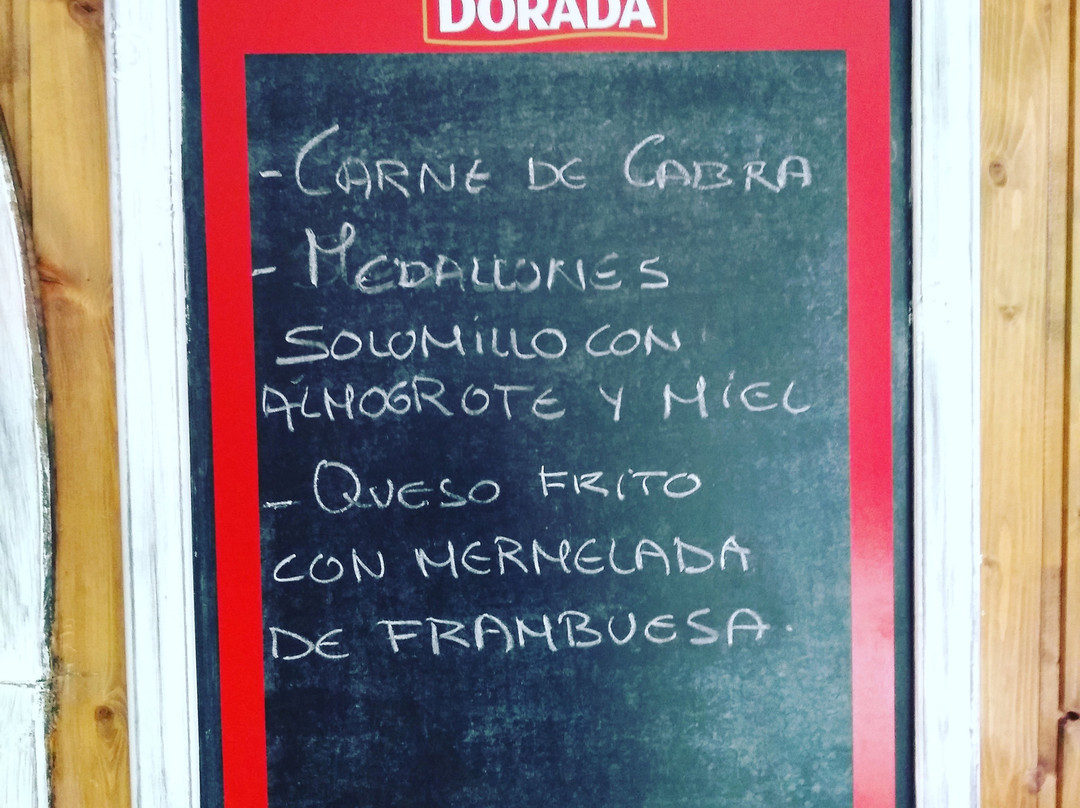 DORADA
- CARNE DE CABRA
- MEDALLONES
SOLOMILLO CON
ALMOGROTE Y MIEL
- QUESO FRITO
CON MERMELADA
DE FRAMBUESA.